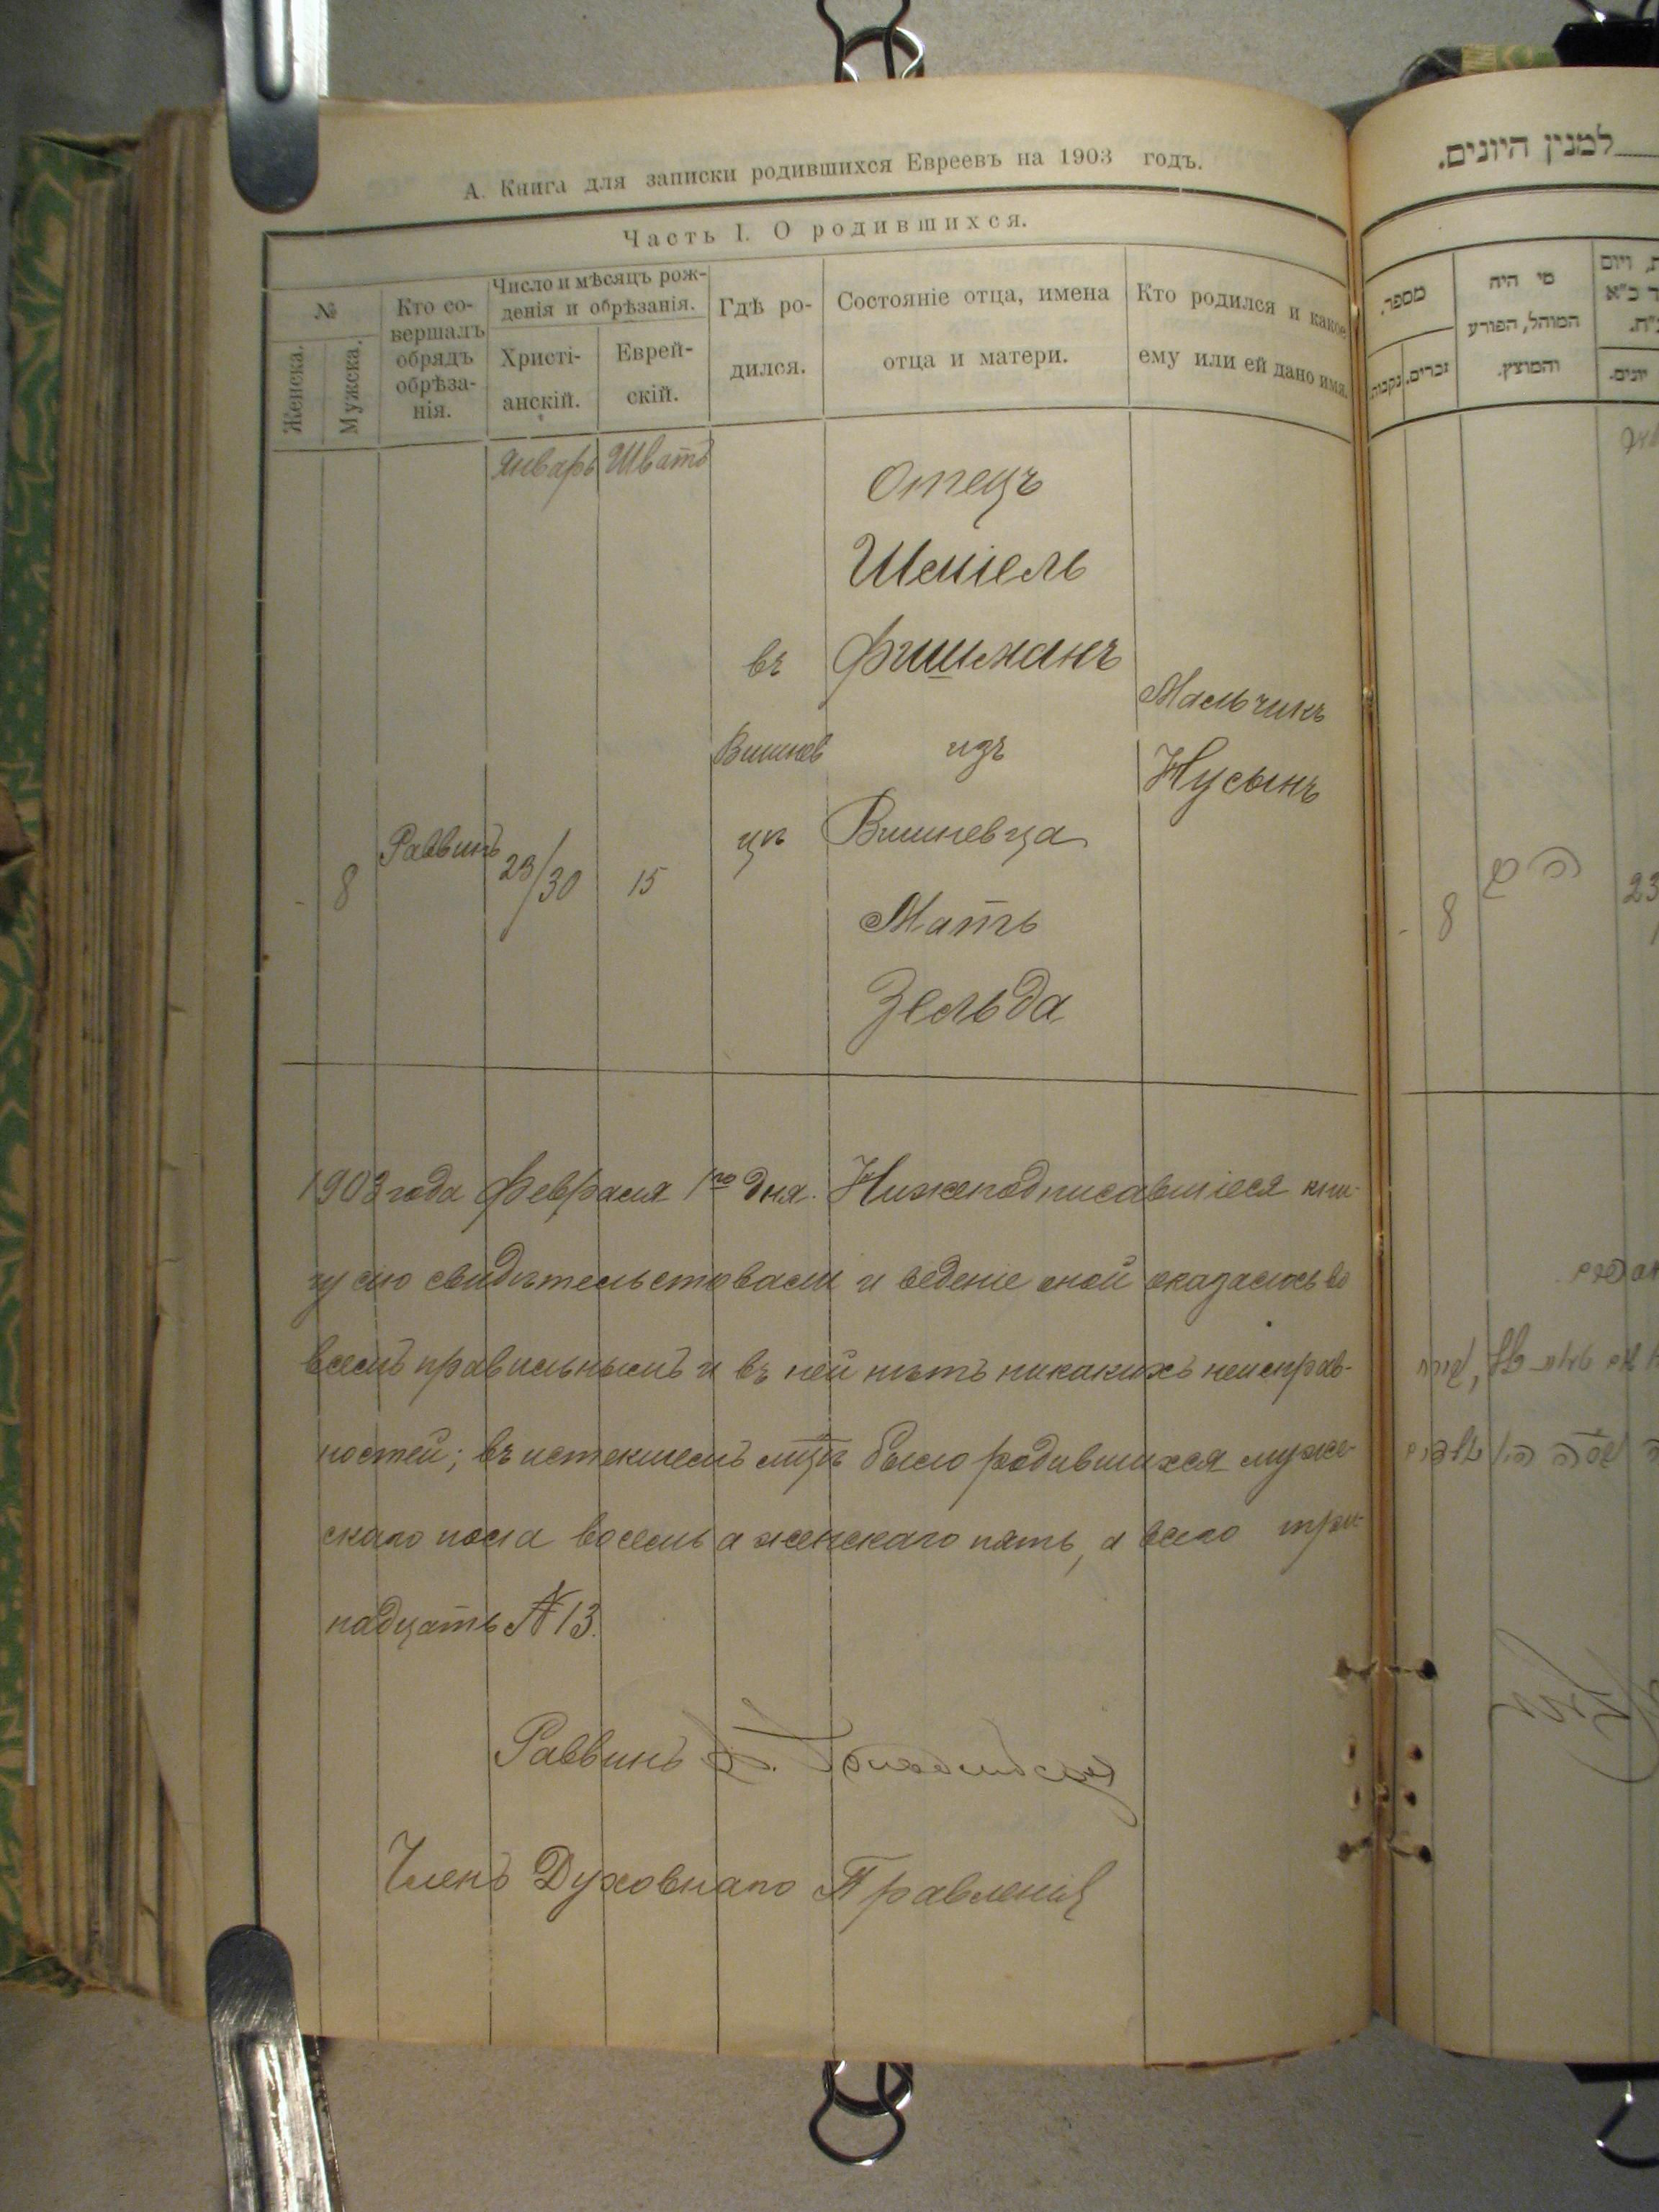 А. Книга для записки родившихся Евреевъ на 1903 годъ.
Часть I. О родившихся.
№
Женска.
Мужска.
Кто со-
вершалъ
обрядъ
обрѣза-
нія.
Число и мѣсяцъ рож-
денія и обрѣзанія.
Христі-
анскій.
Еврей-
скій.
Гдѣ ро-
дился.
Состояніе отца, имена
отца и матери.
Кто родился и какое
ему или ей дано имя.
Январь Шватъ
Отецъ
Шміель
въ Фишманъ
Мальчикъ
Вишнев изъ
Нусынъ
цѣ Вишневца
- 8 Раввинъ 23/30 15
Мать
Зельда
1903 года Февраля 1го дня. Нижеподписавшіеся кни-
гу сію свидѣтельствовали и веденіе оной оказалось во
всемъ правильнымъ и въ ней нѣтъ никакихъ неисправ-
ностей; въ истекшемъ мцѣ было родившихся муже-
скаго пола восемь а женскаго пять, а всего три-
надцать № 13.
Раввинъ
Членъ Духовнаго Правленія
למנין היונים.
מספר.
נקבות
זכרים.
מי היה
המוהל, הפורע
והמוצץ.
יונים.
- 8
23